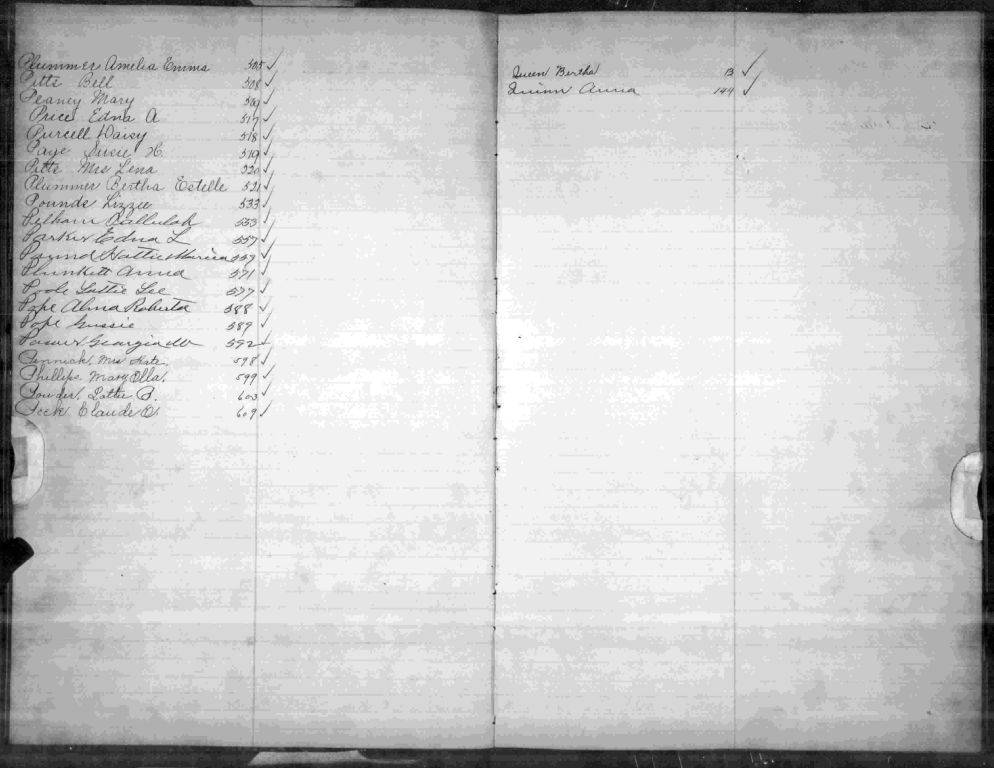 Plummer Amelia Emma 305 ✓
Pitts Bell 308 ✓
Peaney Mary 309 ✓
Price Edna A 317 ✓
Purcell Daisy 318 ✓
Page Susie H. 319 ✓
Pitts Mrs Lena 320 ✓
Plummer Bertha Estelle 521 ✓
Pounds Lizzie 533 ✓
Pelham 553 ✓
Parker Edna L 557 ✓
Hattie 559 ✓
Plunkett Anna 571 ✓
Poole Lottie Lee 577 ✓
Pope Alma Roberta 588 ✓
Pope Gussie 589 ✓
Georgia 592 ✓
Pinnick, Mrs Kate. 598 ✓
Phillips Mary Ella. 599 ✓
Pounder, Lottie B. 603 ✓
Peek, Claude O. 609 ✓
Queen Bertha 13 ✓
Quinn Anna 144 ✓